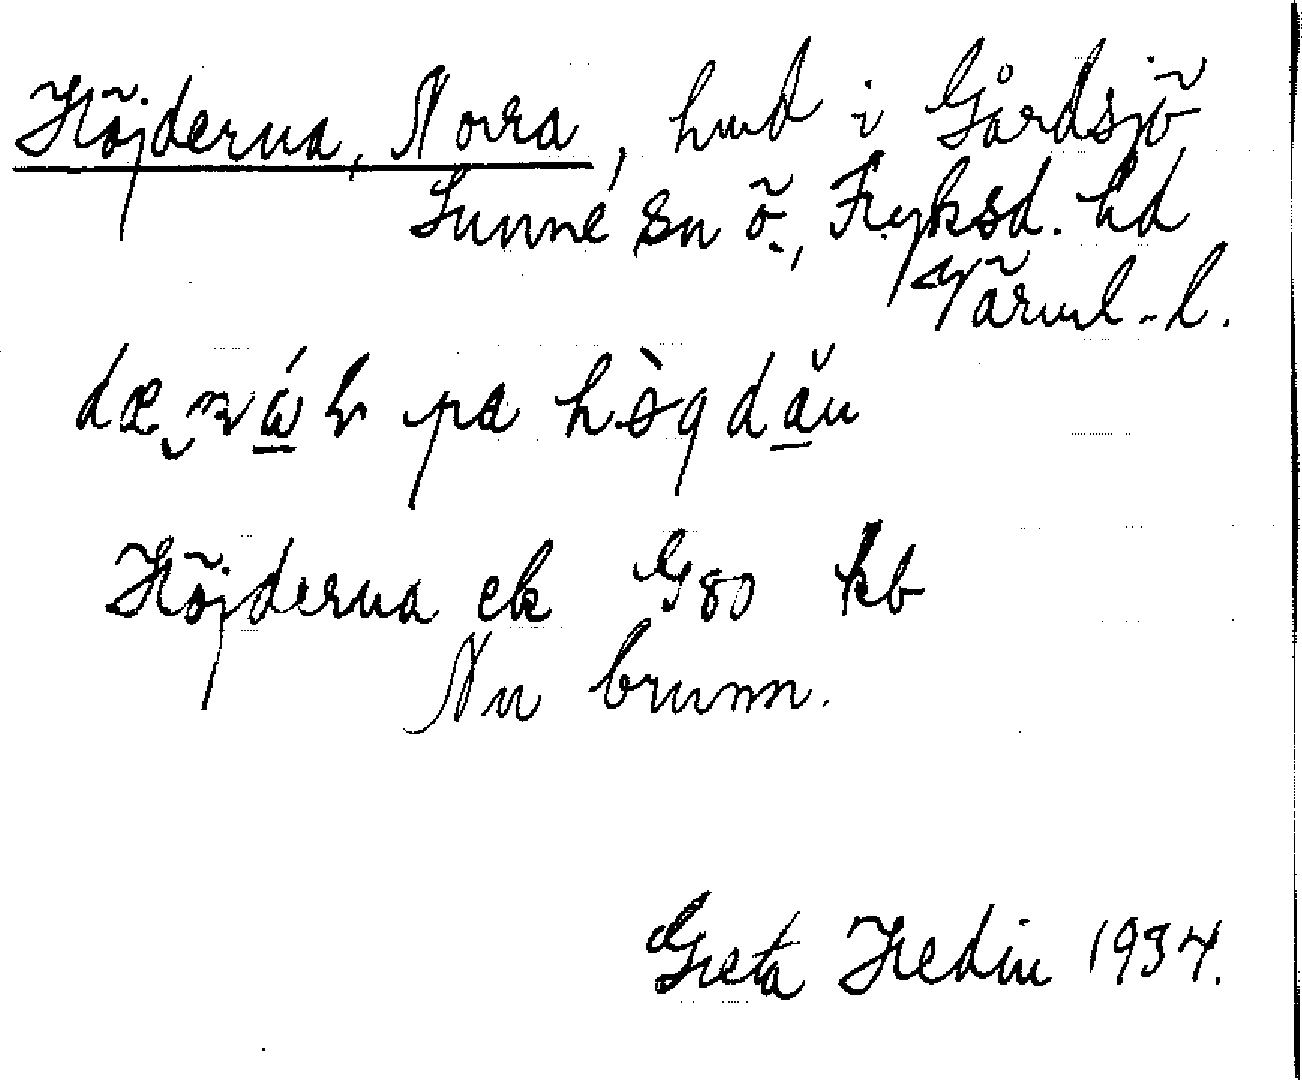 Höjderna, Norra, hmd i Gårdsjö
Sunne sn ö., Fryksd. hd
Värml. l.
pa
Höjderna ek G80 kb
Nu brunn.
Greta Hedin 1934.